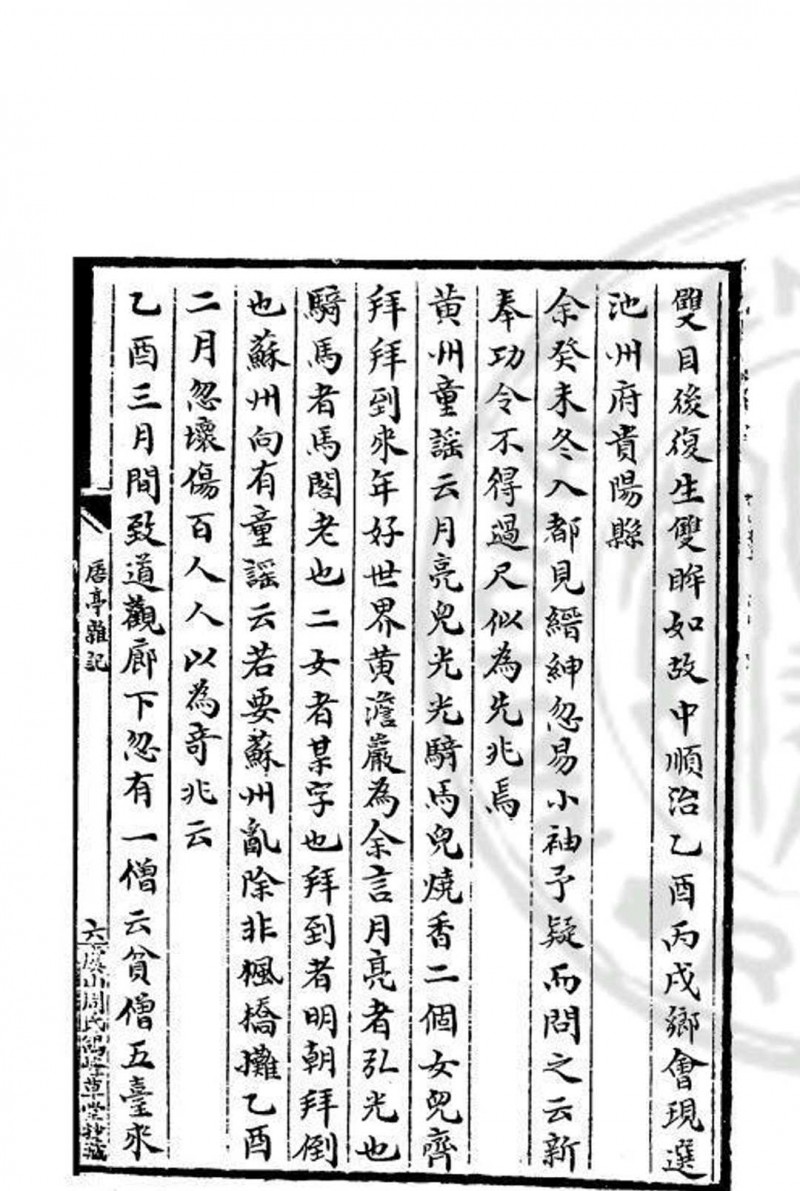 雙目後復生雙眸如故中順治乙酉丙戌鄉會現選
池州府貴陽縣
余癸未冬入都見縉紳忽易小袖予疑而問之云新
奉功令不得過尺似為先兆焉
黃州童謠云月亮兒光光騎馬兒燒香二個女兒齊
拜拜到來年好世界黃澹巖為余言月亮者弘光也
騎馬者馬閣老也二女者某字也拜到者明朝拜倒
也蘇州向有童謠云若要蘇州亂除非楓橋攤乙酉
二月忽壞傷百人人以為奇兆云
乙酉三月間致道觀廊下忽有一僧云貧僧五臺來
吾亭雜記
六
虞山周氏鴿峰草堂鈔藏